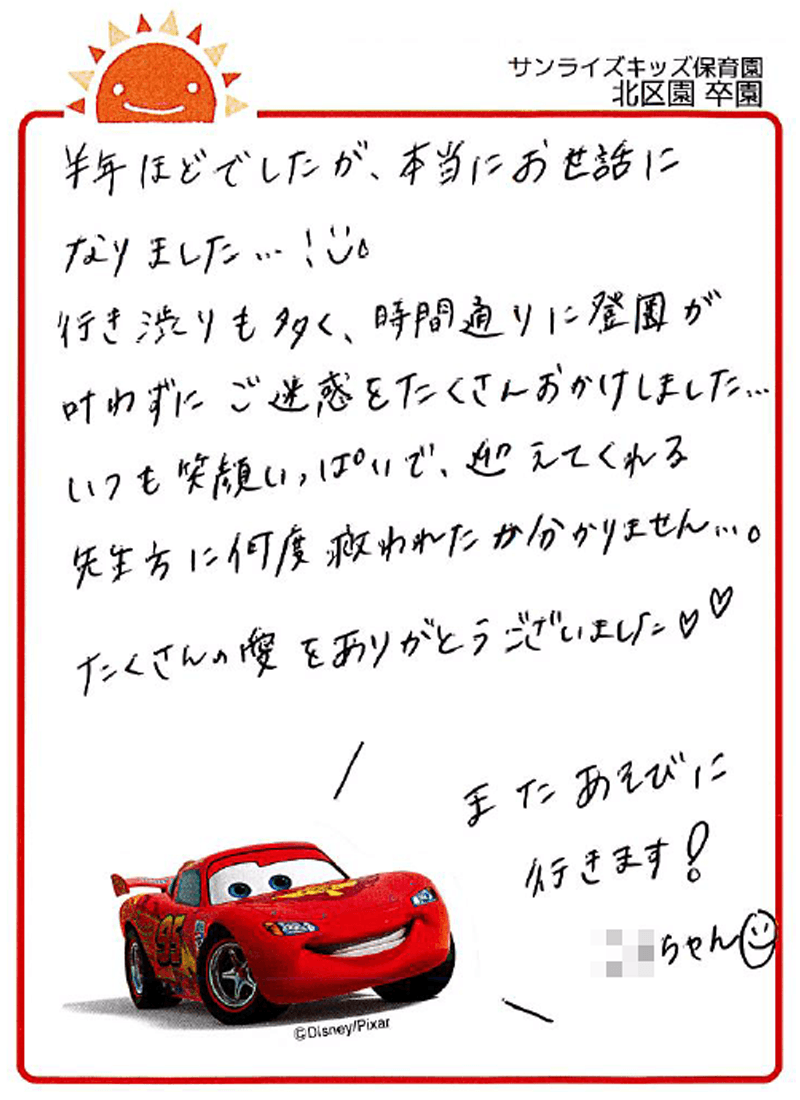 サンライズキッズ保育園
北区園 卒園
半年ほどでしたが、本当にお世話に
なりました…!
行き渋りも多く、時間通りに登園が
叶わずにご迷惑をたくさんおかけしました…
いつも笑顔いっぱいで、迎えてくれる
先生方に何度救われたか分かりません…。
たくさんの愛をありがとうございました♡♡
またあそびに
行きます!
ちゃん
95
©Disney/Pixar